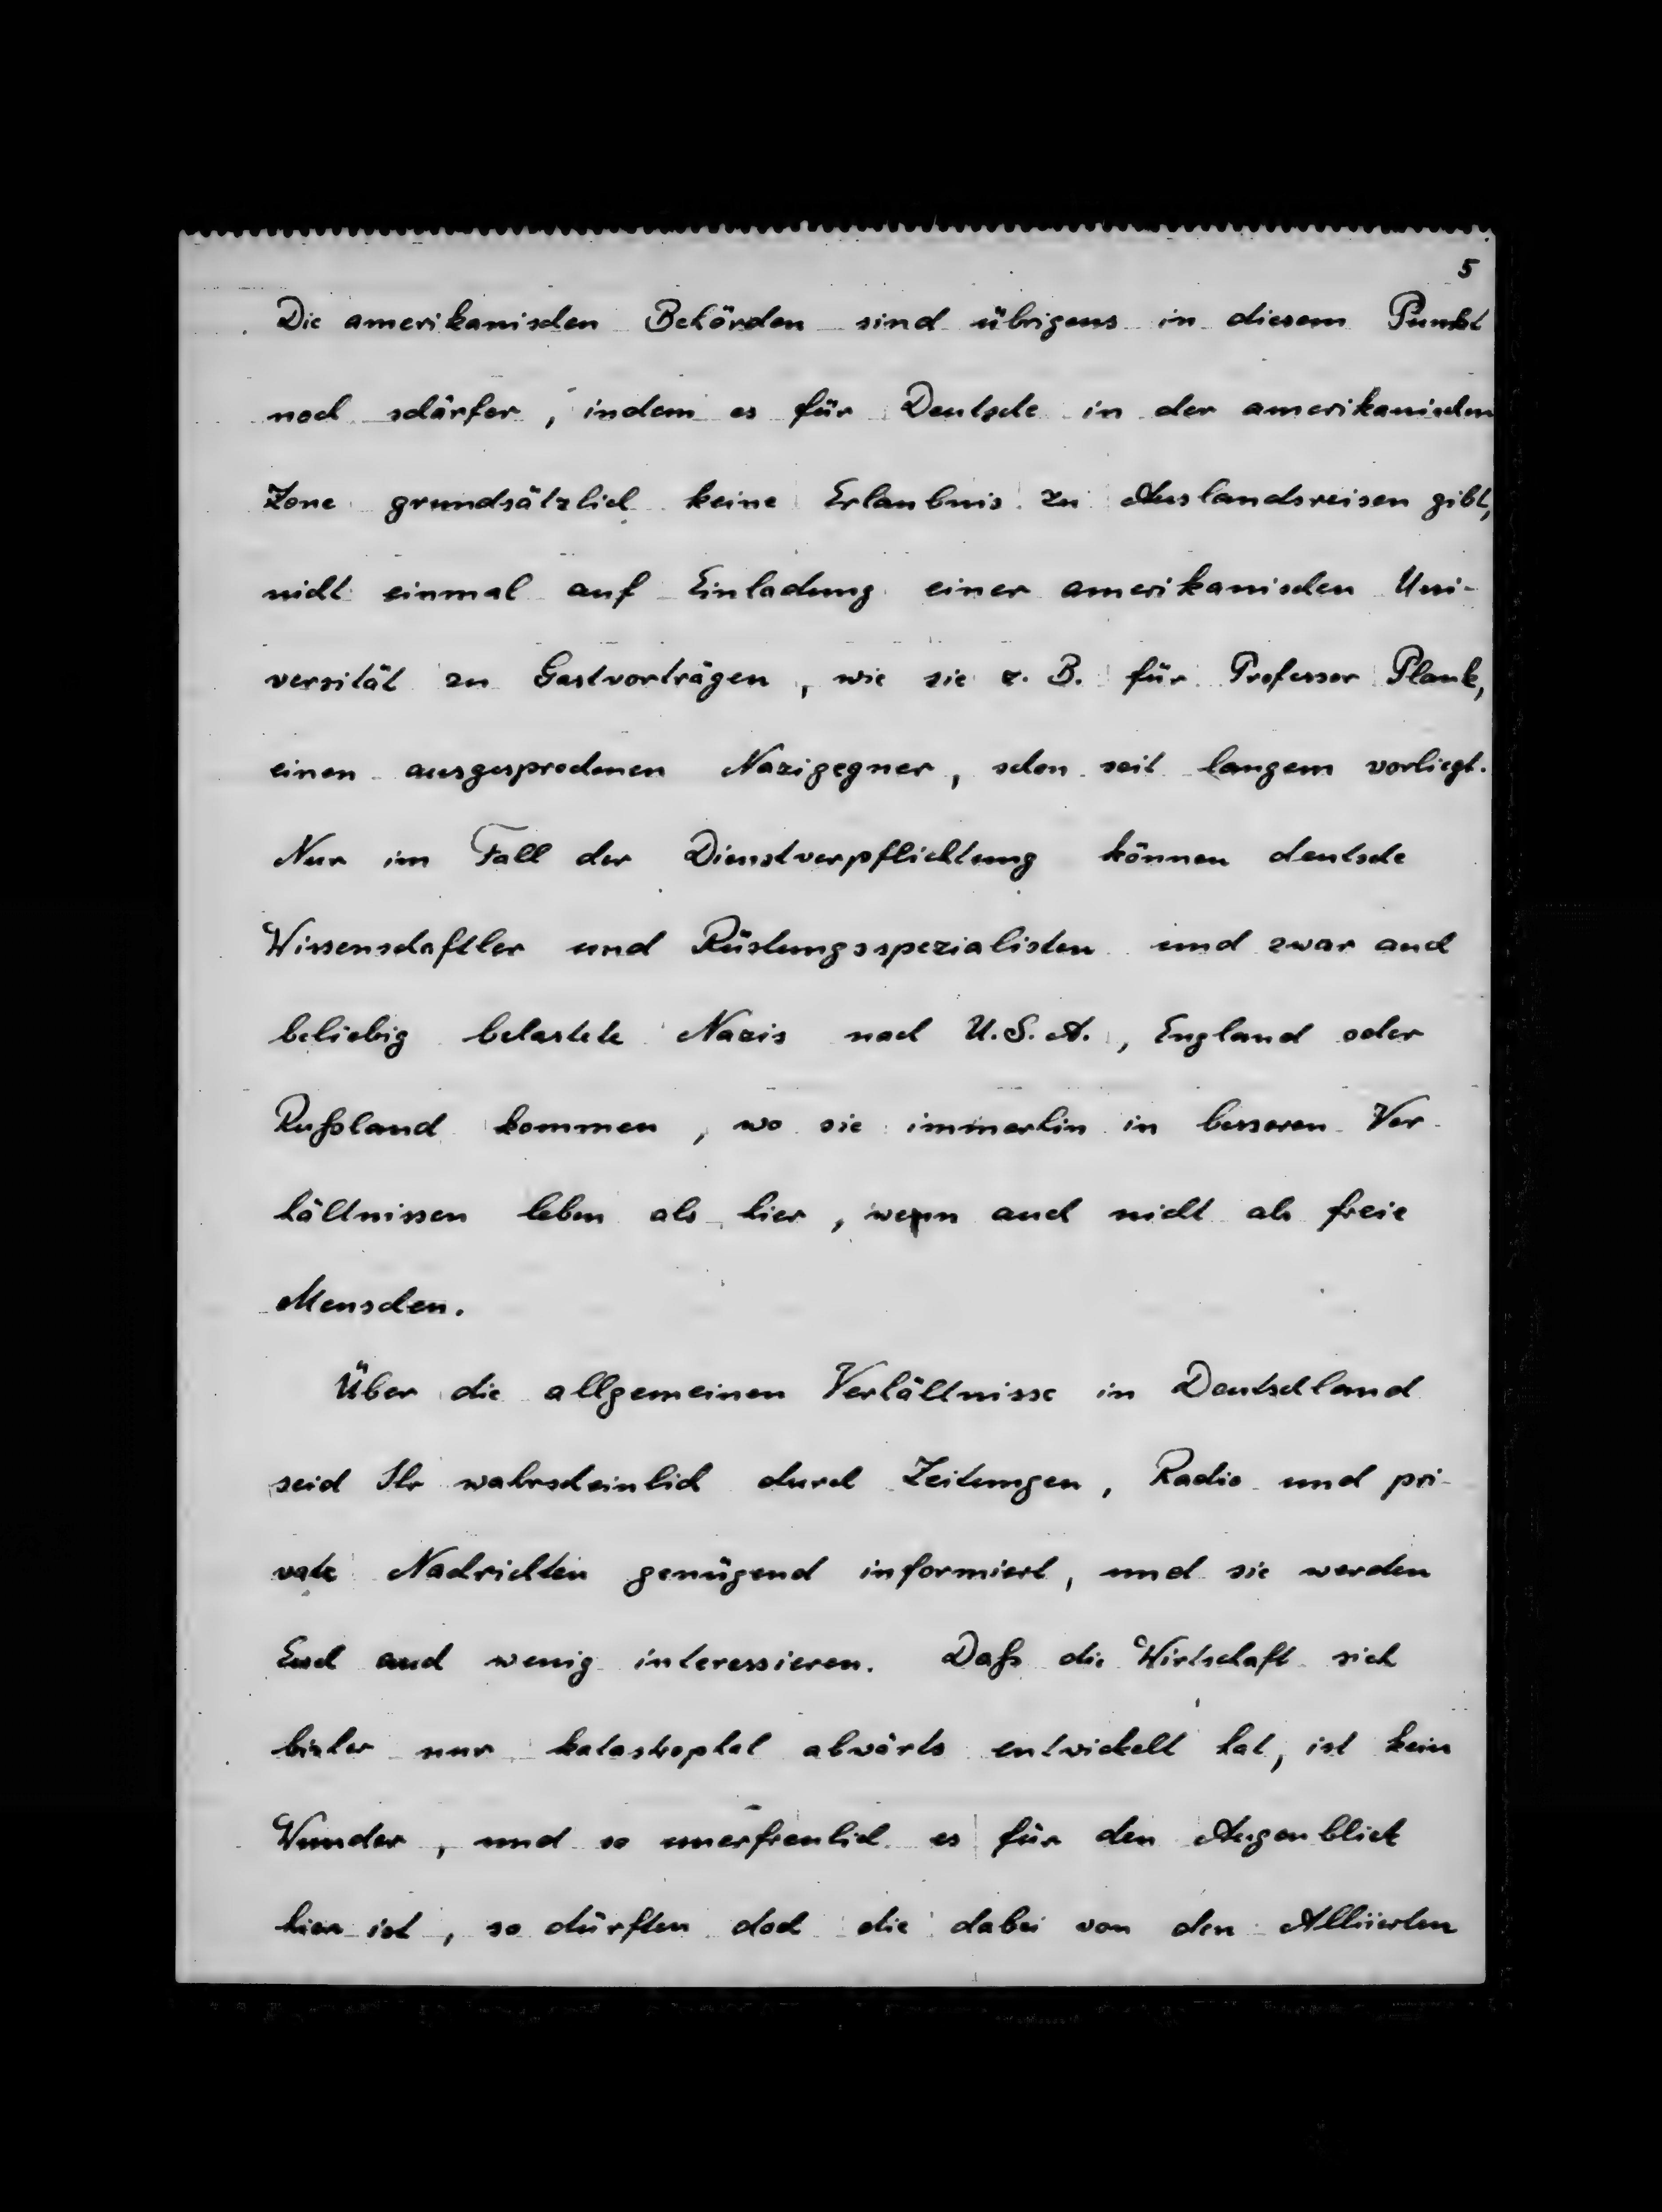 5
Die amerikanischen Behörden sind übrigens in diesem Punkt
noch schärfer, indem es für Deutsche in der amerikanischen
Zone grundsätzlich keine Erlaubnis zu Auslandsreisen gibt,
nicht einmal auf Einladung einer amerikanischen Uni-
versität zu Gastvorträgen, wie sie z. B. für Professor Plank,
einen ausgesprochenen Nazigegner, schon seit langem vorliegt.
Nur im Fall der Dienstverpflichtung können deutsche
Wissenschaftler und Rüstungsspezialisten und zwar auch
beliebig belastete Nazis nach U.S.A., England oder
Rußland kommen, wo sie immerhin in besseren Ver-
hältnissen leben als hier, wenn auch nicht als freie
Menschen.
Über die allgemeinen Verhältnisse in Deutschland
seid Ihr wahrscheinlich durch Zeitungen, Radio und pri-
vate Nachrichten genügend informiert, und sie werden
Euch auch wenig interessieren. Daß die Wirtschaft sich
bisher nur katastrophal abwärts entwickelt hat, ist kein
Wunder, und so unerfreulich es für den Augenblick
hier ist, so dürften doch die dabei von den Alliierten